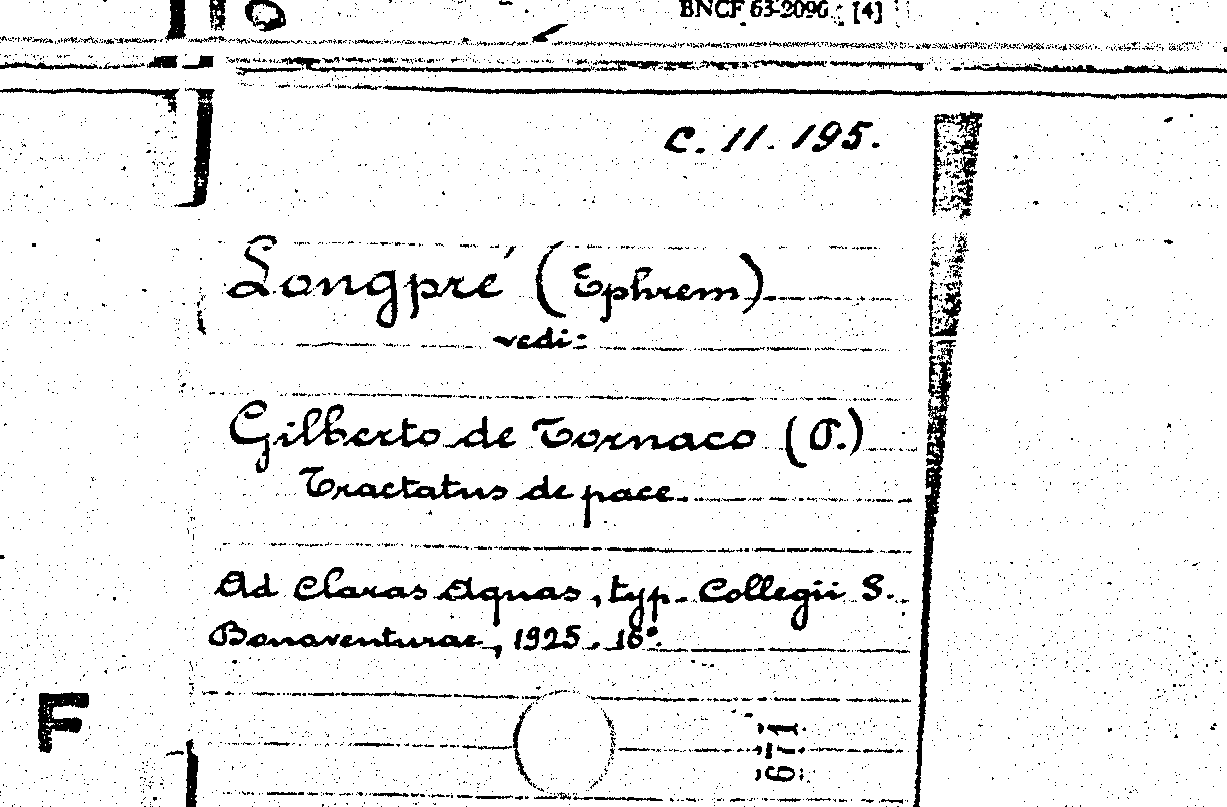 BNCF 63-2096 [4]
C. 11. 195.
Longpré (Ephrem)
vedi:
Gilberto de Tornaco (P.)
Tractatus de pace.
Ad Claras Aquas, typ. Collegii S.
Bonaventurae, 1925. 16°.
F
671